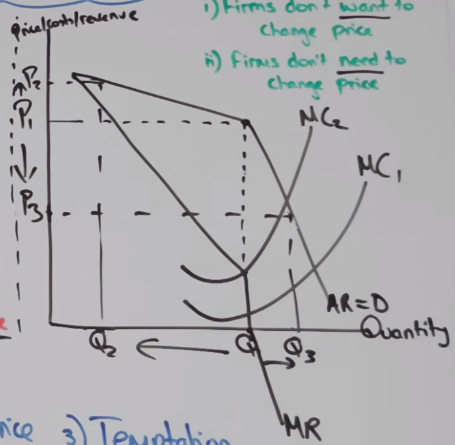 Price/costs/revenue
i) Firms don't want to
change price
ii) Firms don't need to
change price
P₂
P₁
P₃
MC₂
MC₁
AR=D
Quantity
Q₂
Q
Q₃
MR
3) Temptation